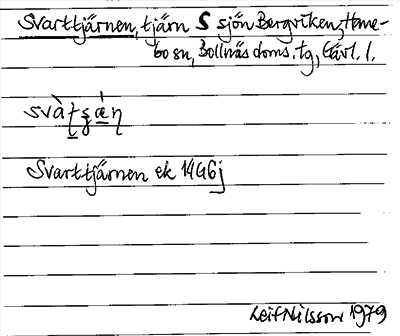 Svarttjärnen, tjärn S sjön Bergviken, Hame-
bo sn, Bollnäs doms. tg, Gävl. l.
Svarttjärnen ek 14G6j
Leif Nilsson 1979